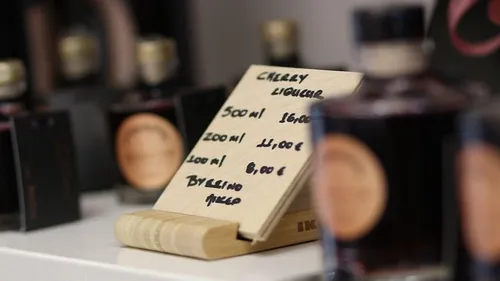 CHERRY
LIQUEUR
500 ml 16,00
200 ml 11,00 €
100 ml 8,00 €
BYRRINO